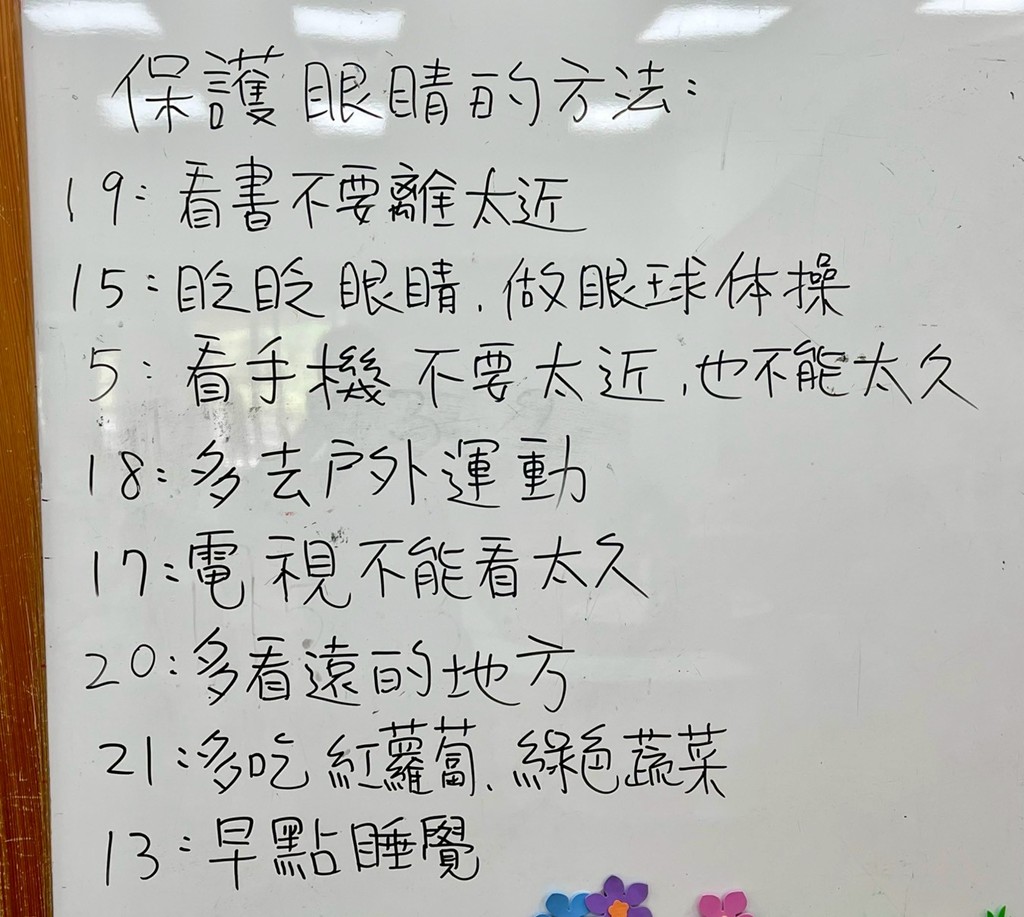 保護眼睛的方法：
19：看書不要離太近
15：眨眨眼睛、做眼球体操
5：看手機不要太近、也不能太久
18：多去戶外運動
17：電視不能看太久
20：多看遠的地方
21：多吃紅蘿蔔、綠色蔬菜
13：早點睡覺